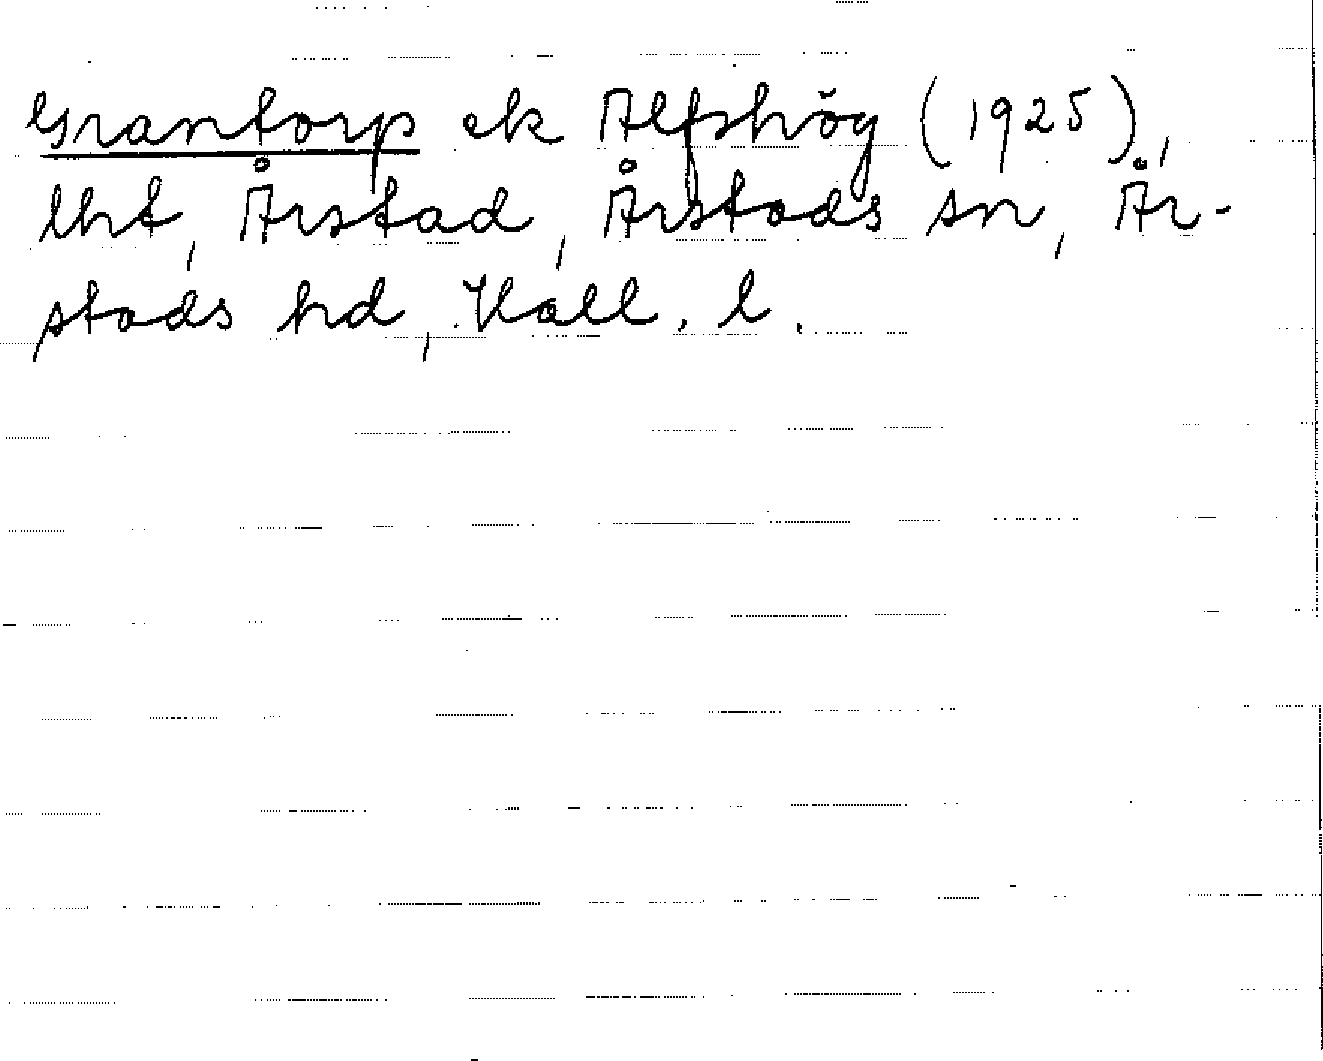 Grantorp ek Alfshög (1925),
lht, Årstad, Årstads sn, År-
stads hd, Hall. l.